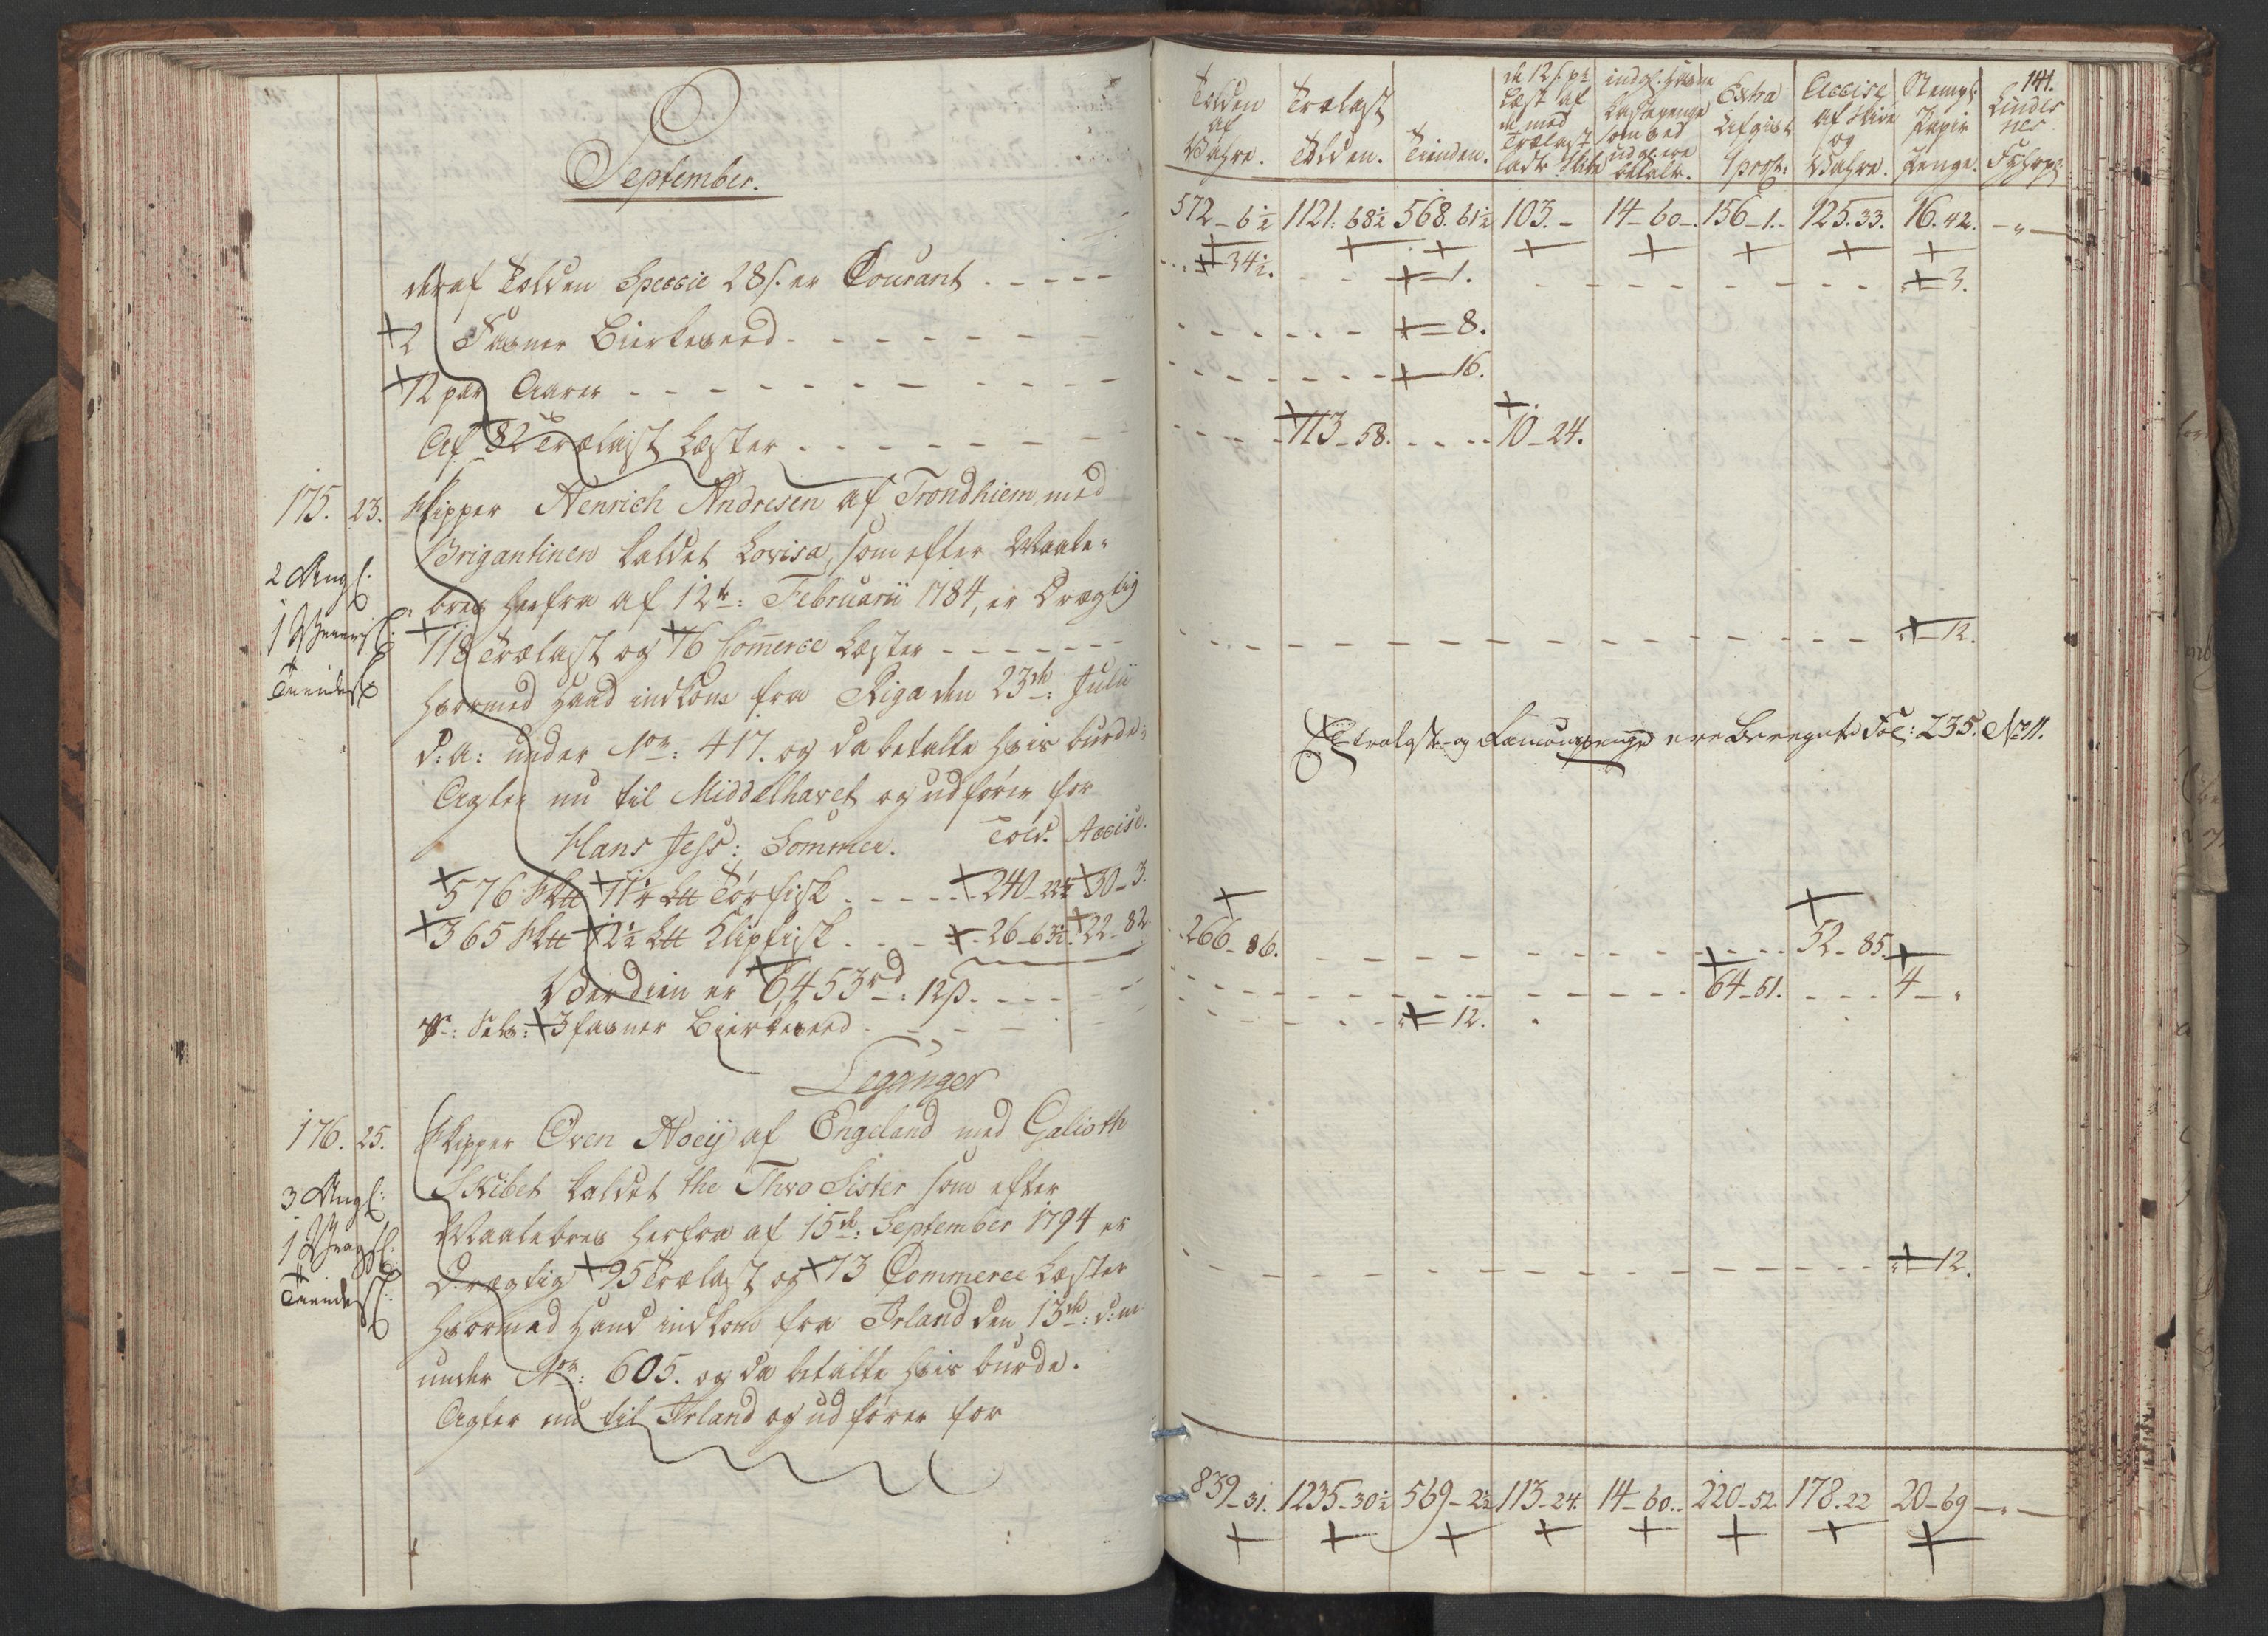 September.
deraf Tolden Specie 28 s. er Courant
2 Fagner Birkeveed
12 par Aarer
Af 82 Trælast Læster
175. 23. Skipper Henrich Andresen af Trondhiem med
Brigantinen kaldet Lovisa, som efter Maale-
brev herfra af 12te: Februarii 1784, er Drægtig
118 Trælast og 76 Comerce Læster
hvormed hand indkom fra Riga den 23de: Julii
d: a: under No: 417. og da betalte hvis burde.
Agter nu til Middelhavet og udfører for
Hans Jess: Sommer. Told. Accise.
576 11 1/4 Tørfisk 240-22 1/2 30-3.
365 2 1/2 Klipfisk 26-63 1/2 22-82.
Værdien er 6,453 rd: 12 s.
3 fagner Birkeveed
Leganger
2 Angl.
Tiendes
176. 25. Skipper Oven Hoeij af Engeland med Galioth
Skibet kaldet the Thvo Sister som efter
Maalebrev herfra af 15de: September 1794 er
Drægtig 95 Trælast og 73 Commerce Læster
hvormed hand indkom fra Irland den 13de: d: m:
under No: 605. og da betalte hvis burde.
Agter nu til Irland og udfører for
3 Angl:
Tiendes
141.
Tolden af Vahre.
Trælast Tolden.
Tienden.
de 12 s. pr Læst af de med Trælast ladte Skibe
Extra Afgivt 1 proct:
Accise af Skive og Vahre.
Stempl: Papir Penge.
Lindes nes Fyhrp:
572-6 1/2 1121. 68 1/2 568. 61 1/2 103.- 14-60-. 156-1.- 125.33. 16.42. -"-
34 1/2. 1. 3.
8.
16.
113-58. 10-24.
12.
Trælast- og ere Beregnet Fol: 235. No 11.
266-86. 52-85.
64-51. 4-"
12.
12.
839-31. 1235-30 1/2 569-2 1/2 113-24. 14-60.. 220-52. 178.22 20-69 -"-